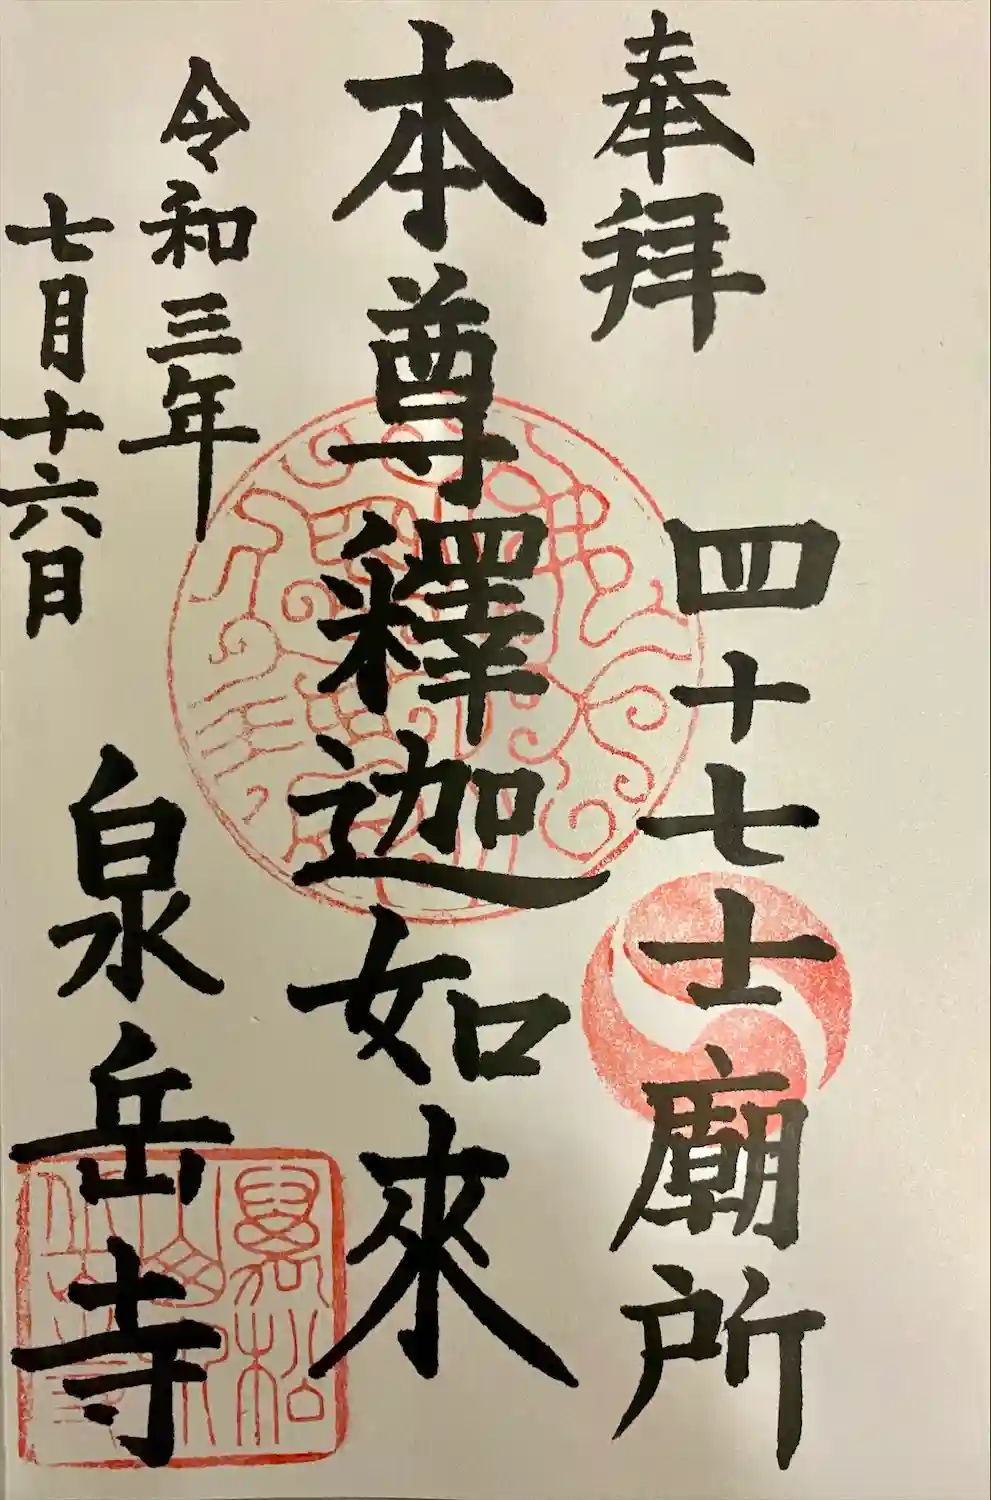 奉拝
四十七士廟所
本尊釋迦如來
令和三年
七月十六日
泉岳寺
萬松